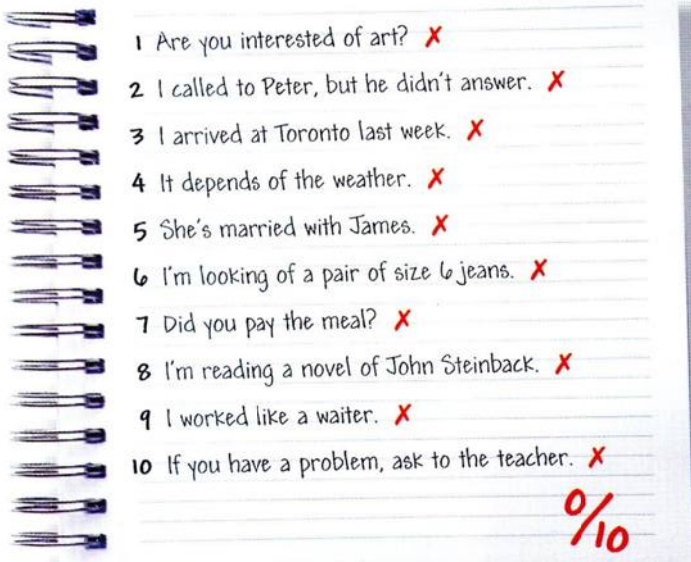 1 Are you interested of art? ✗
2 I called to Peter, but he didn't answer. ✗
3 I arrived at Toronto last week. ✗
4 It depends of the weather. ✗
5 She's married with James. ✗
6 I'm looking of a pair of size 6 jeans. ✗
7 Did you pay the meal? ✗
8 I'm reading a novel of John Steinback. ✗
9 I worked like a waiter. ✗
10 If you have a problem, ask to the teacher. ✗
0/10